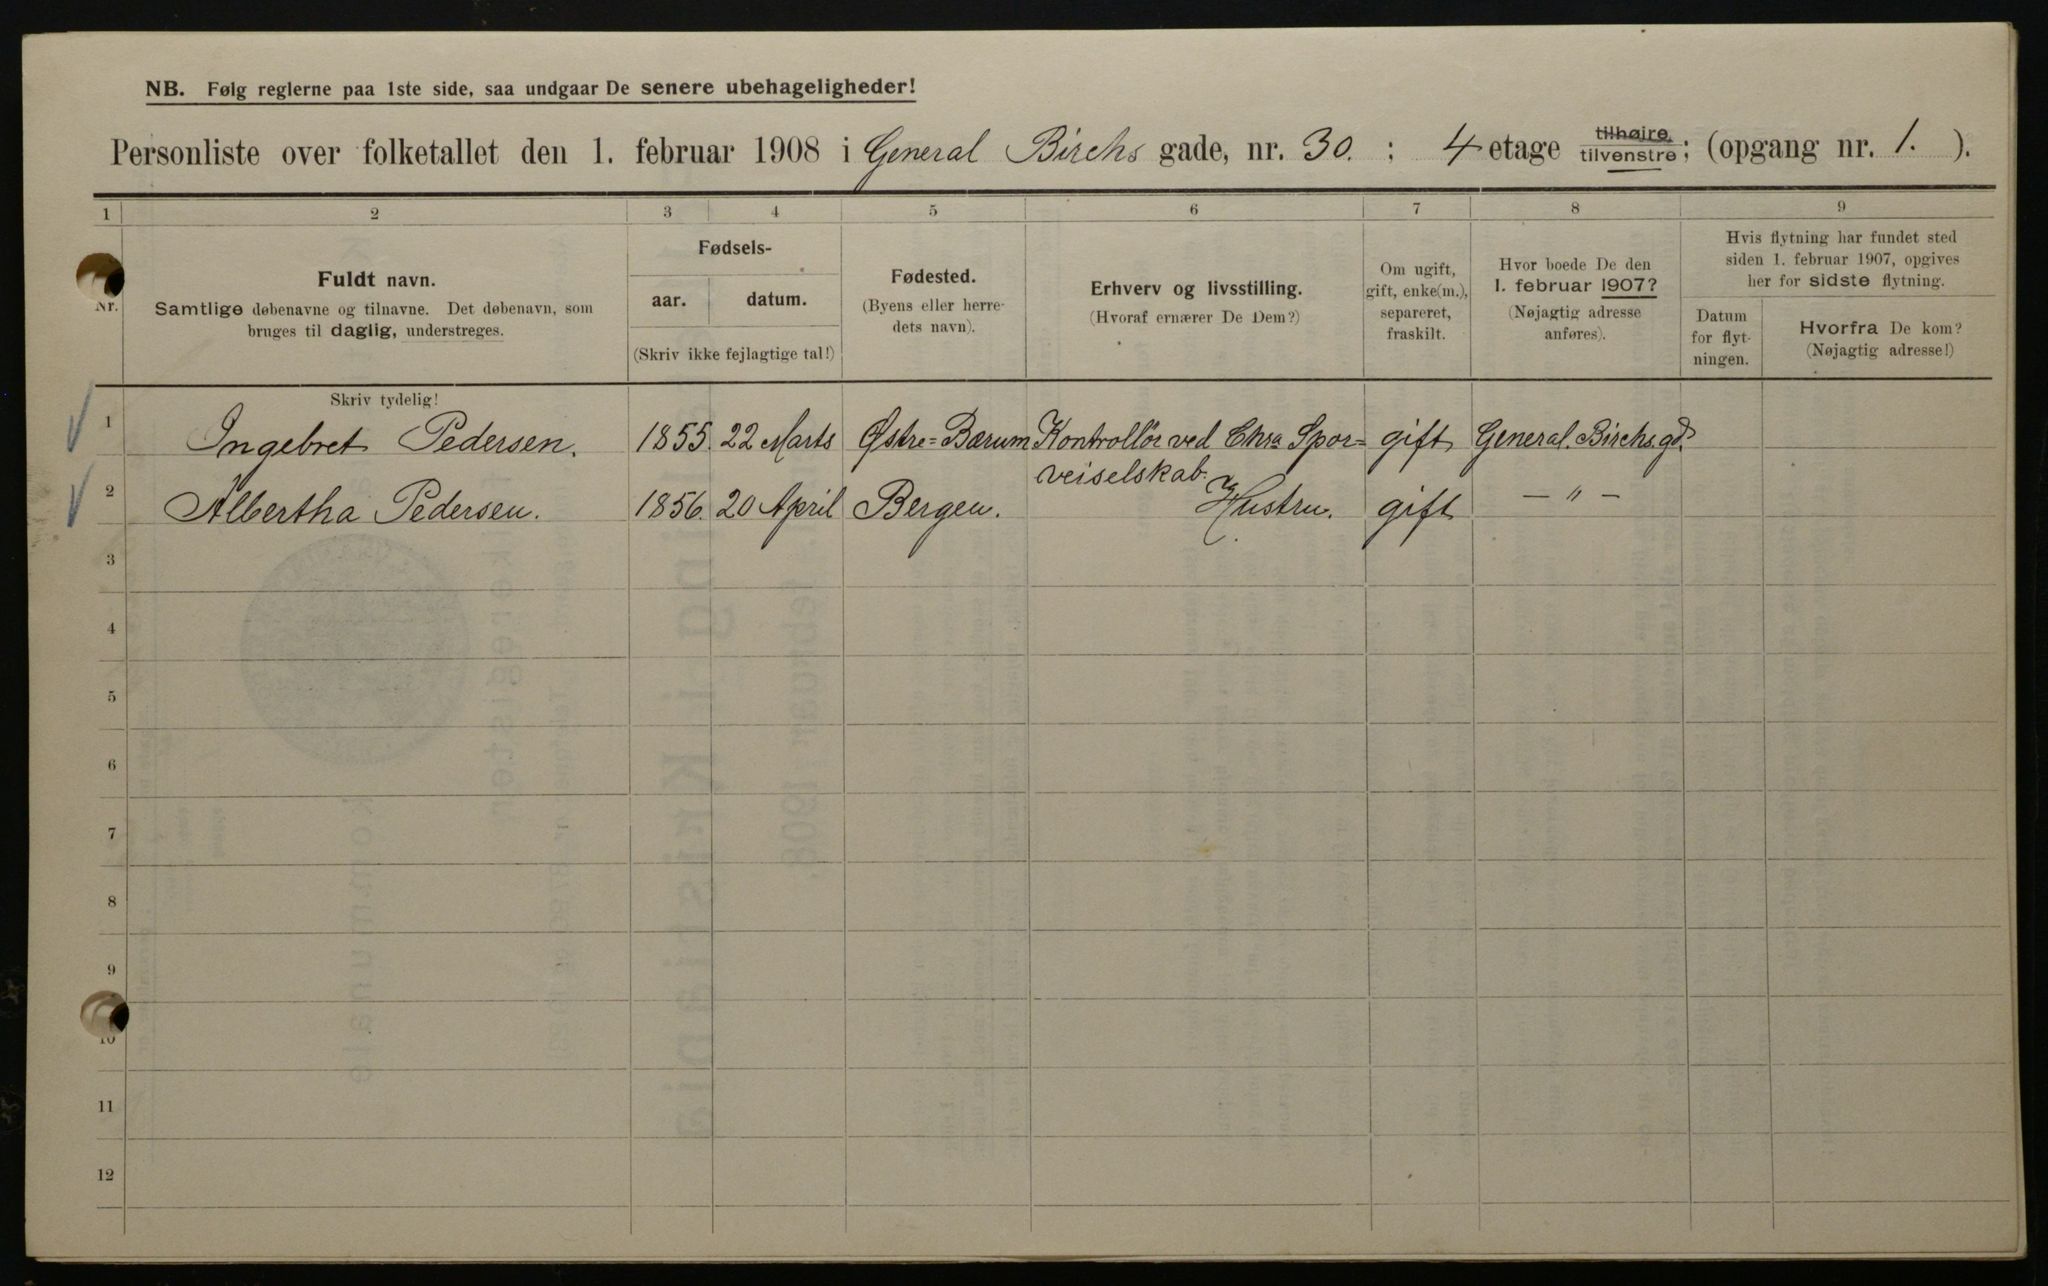 NB. Følg reglerne paa 1ste side, saa undgaar De senere ubehageligheder!
Personliste over folketallet den 1. februar 1908 i General Birchs gade, nr. 30. ; 4 etage tilhøire tilvenstre; (opgang nr. 1. ).
1 2 3 4 5 6 7 8 9
Nr.
Fuldt navn.
Samtlige døbenavne og tilnavne. Det døbenavn, som
bruges til daglig, understreges.
Fødsels-
aar. datum.
(Skriv ikke fejlagtige tal!)
Fødested.
(Byens eller herre-
dets navn).
Erhverv og livsstilling.
(Hvoraf ernærer De Dem?)
Om ugift,
gift, enke(m.),
separeret,
fraskilt.
Hvor boede De den
1. februar 1907?
(Nøjagtig adresse
anføres).
Hvis flytning har fundet sted
siden 1. februar 1907, opgives
her for sidste flytning.
Datum
for flyt-
ningen.
Hvorfra De kom?
(Nøjagtig adresse!)
Skriv tydelig!
1 Ingebret Pedersen. 1855. 22 Marts Østre=Bærum Kontrollör ved Chra Spor= gift General. Birchs gd.
veiselskab.
2 Albertha Pedersen. 1856. 20 April Bergen. Hustru. gift — " —
3
4
5
6
7
8
9
10
11
12